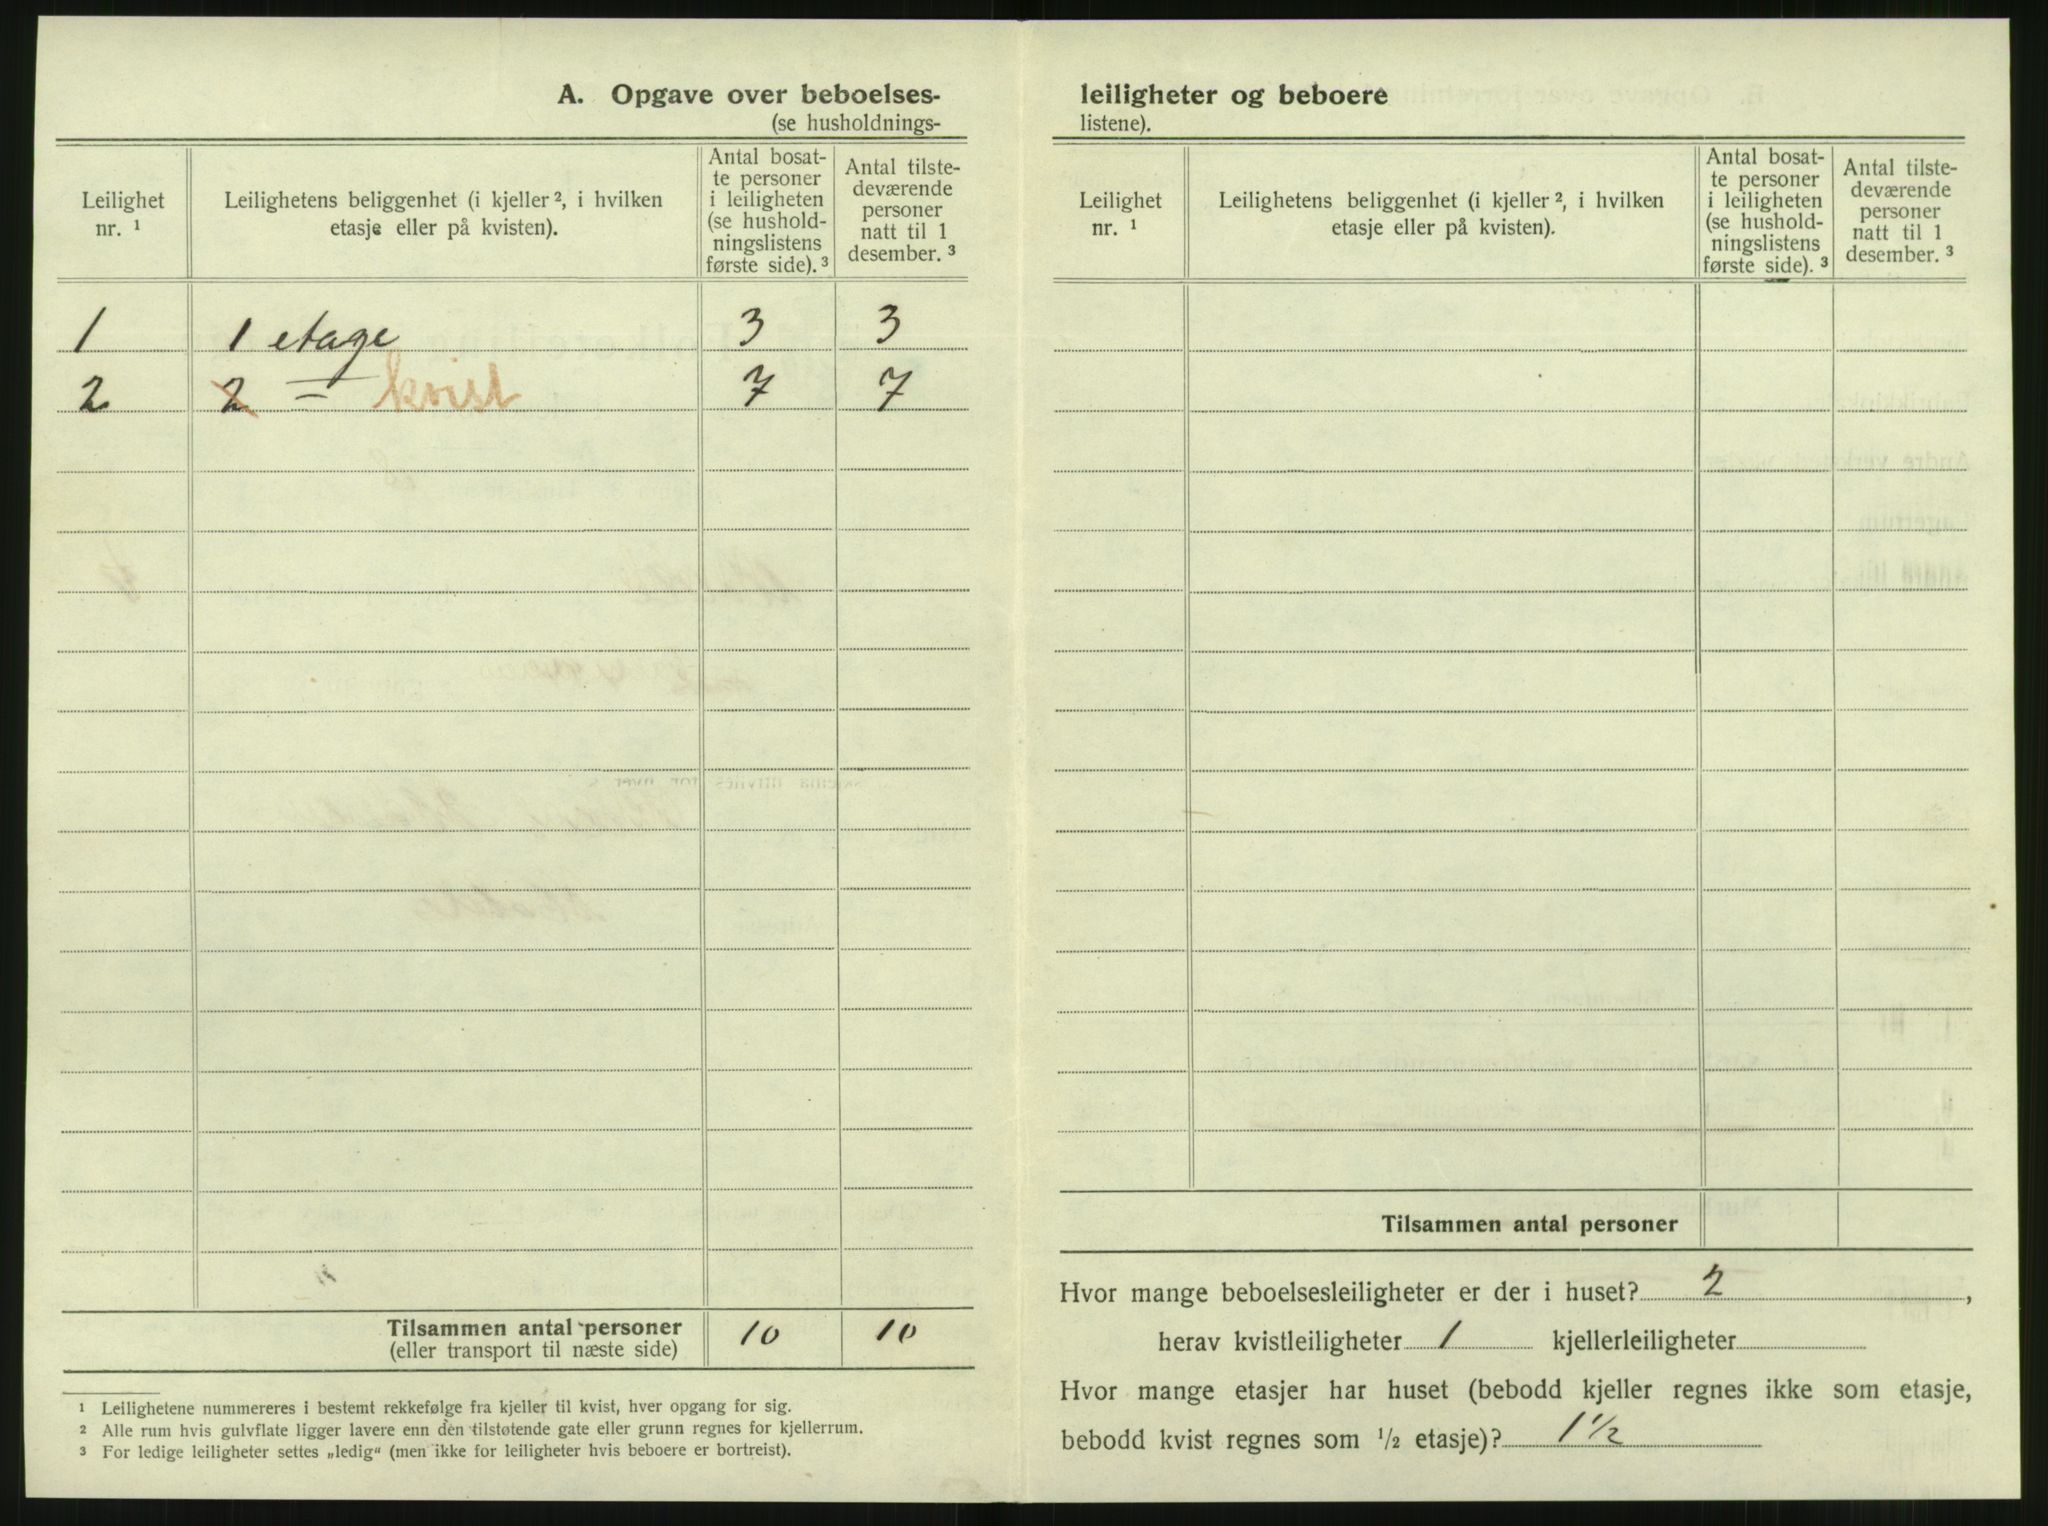 A. Opgave over beboelses-
(se husholdnings-
Leilighet nr. 1
Leilighetens beliggenhet (i kjeller 2, i hvilken
etasje eller på kvisten).
Antal bosat-
te personer
i leiligheten
(se hushold-
ningslistens
første side). 3
Antal tilste-
deværende
personer
natt til 1
desember. 3
1 1 etage 3 3
2 2 = kvist 7 7
Tilsammen antal personer 10 10
(eller transport til næste side)
1 Leilighetene nummereres i bestemt rekkefølge fra kjeller til kvist, hver opgang for sig.
2 Alle rum hvis gulvflate ligger lavere enn den tilstøtende gate eller grunn regnes for kjellerrum.
3 For ledige leiligheter settes „ledig“ (men ikke for leiligheter hvis beboere er bortreist).
leiligheter og beboere
listene).
Leilighet nr. 1
Leilighetens beliggenhet (i kjeller 2, i hvilken
etasje eller på kvisten).
Antal bosat-
te personer
i leiligheten
(se hushold-
ningslistens
første side). 3
Antal tilste-
deværende
personer
natt til 1
desember. 3
Tilsammen antal personer
Hvor mange beboelsesleiligheter er der i huset? 2 ,
herav kvistleiligheter 1 kjellerleiligheter
Hvor mange etasjer har huset (bebodd kjeller regnes ikke som etasje,
bebodd kvist regnes som 1/2 etasje)? 1 1/2